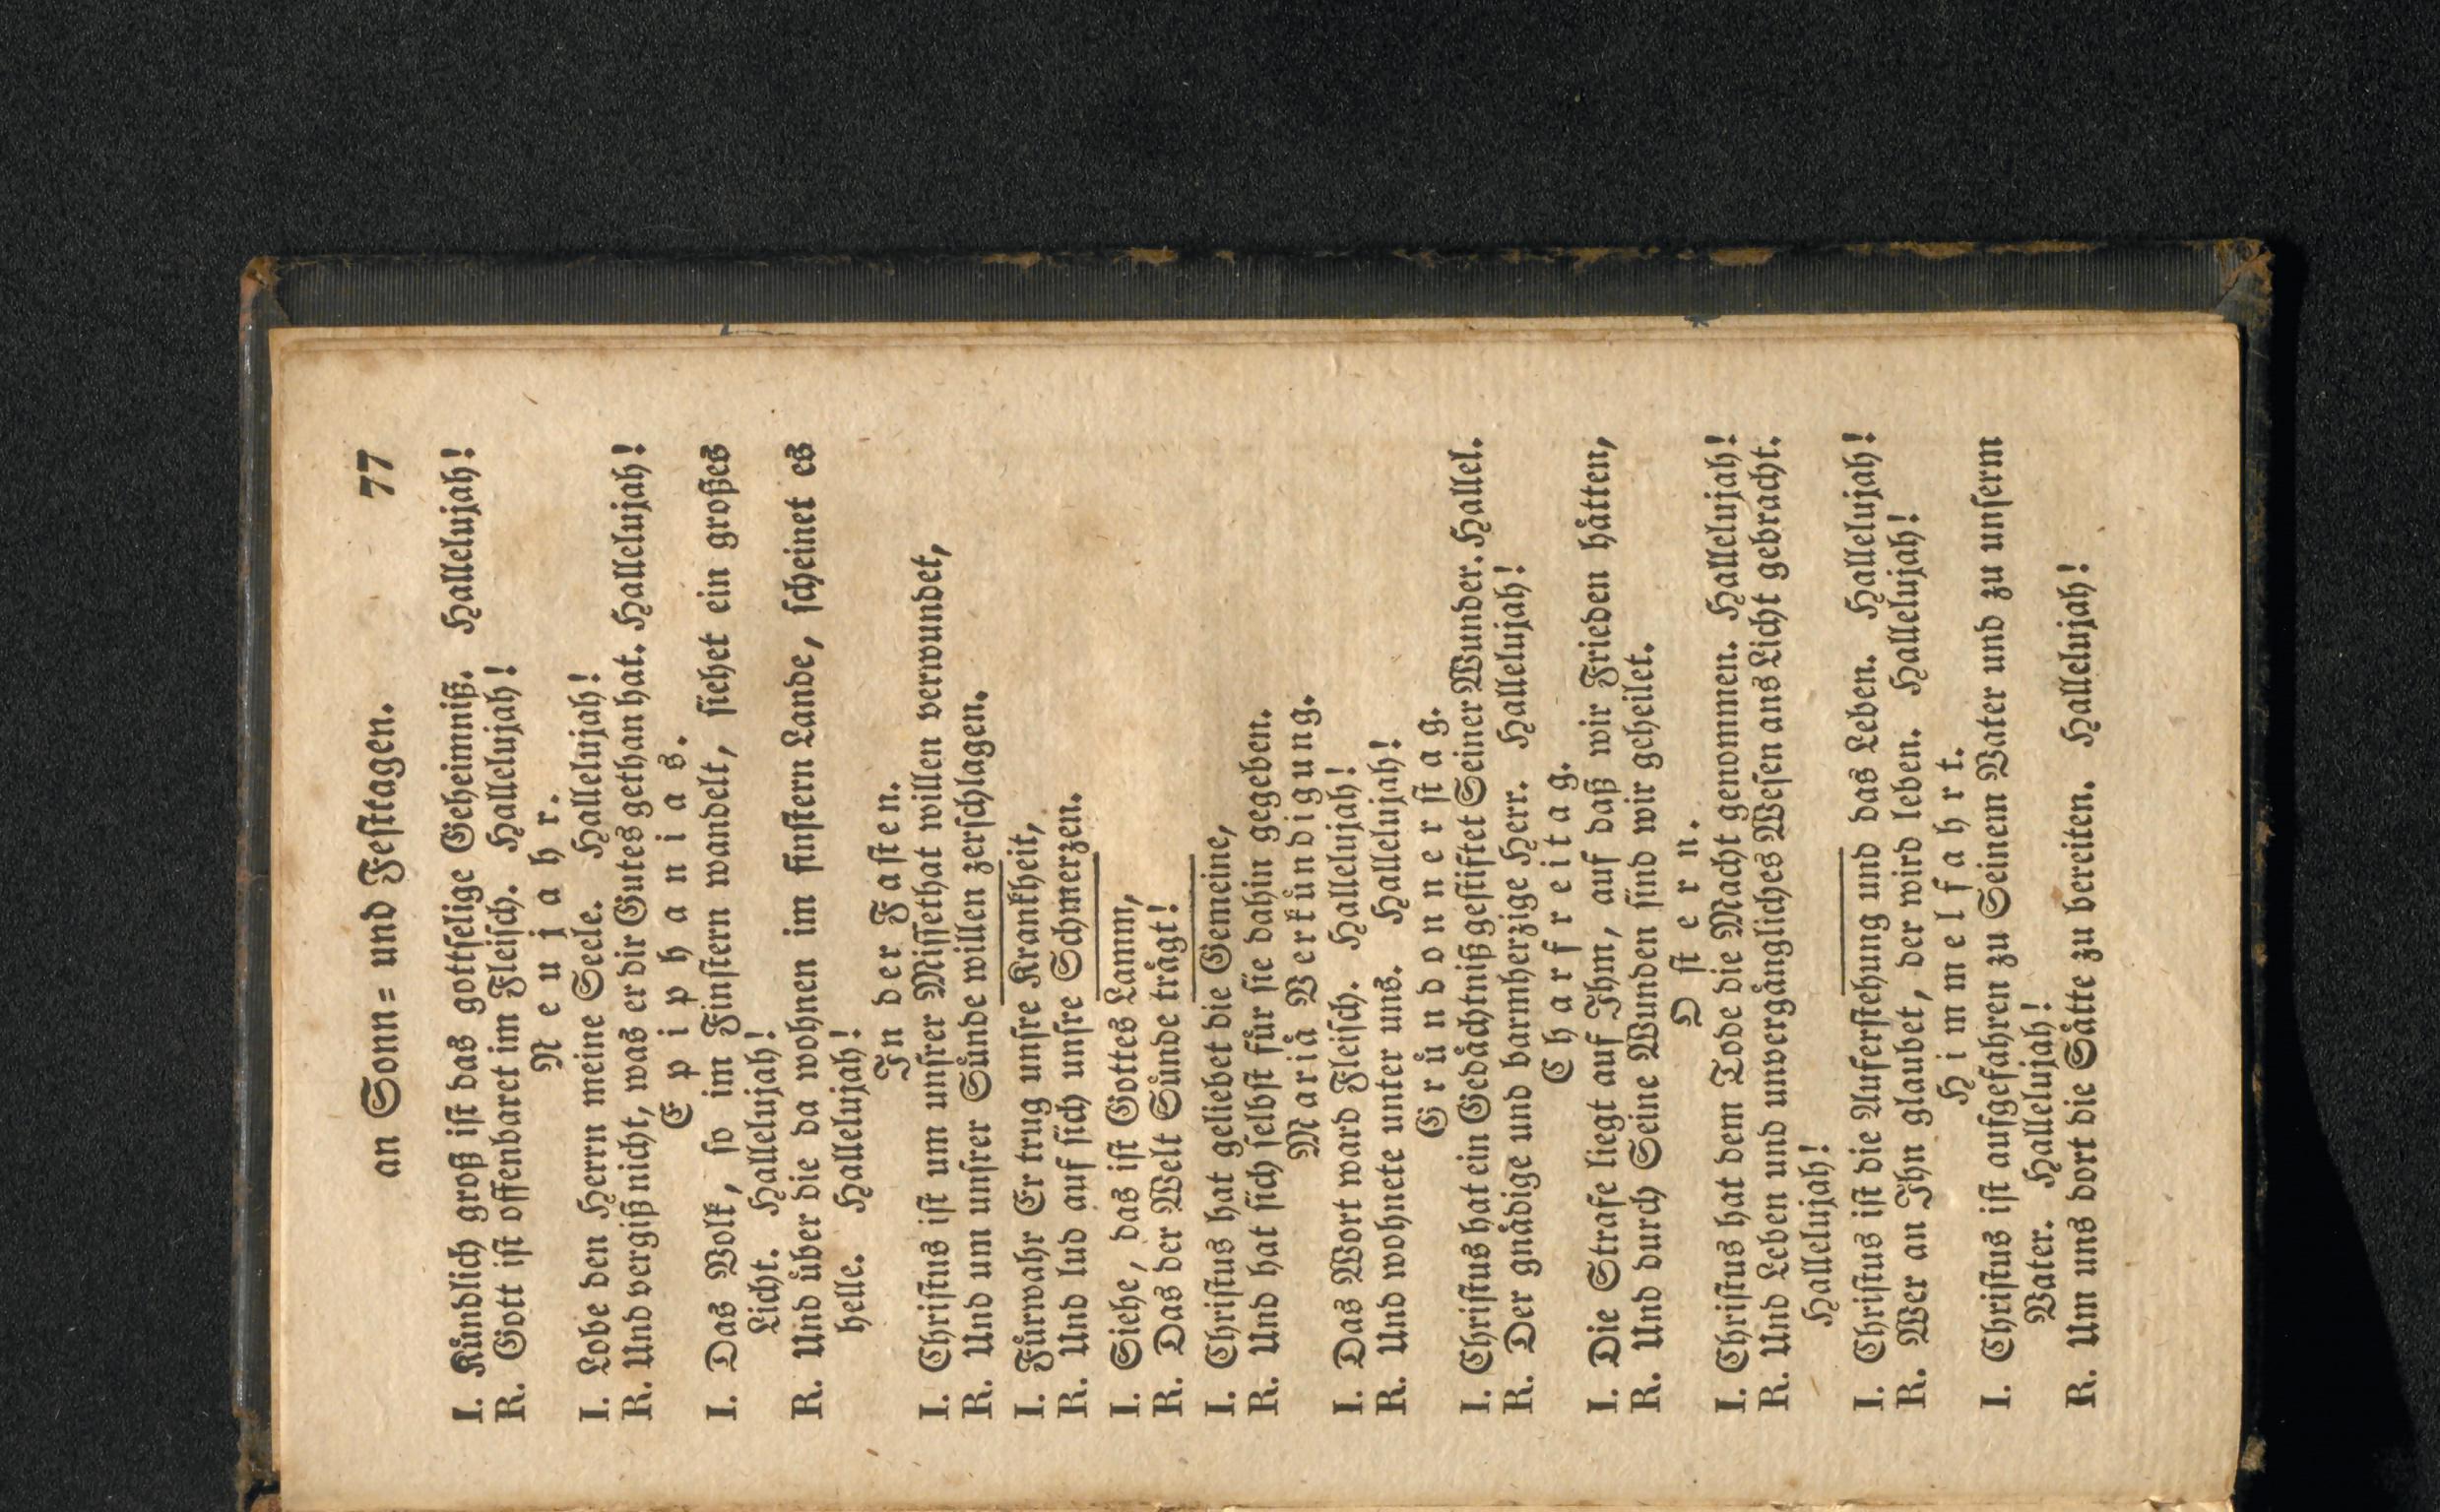 an Sonn= und Festtagen. 77
I. Kůndlich groß ist das gottselige Geheimniß. Hallelujah!
R. Gott ist offenbaret im Fleisch. Hallelujah!
Neujahr.
I. Lobe den Herrn meine Seele. Hallelujah!
R. Und vergiß nicht, was er dir Gutes gethan hat. Hallelujah!
Epiphanias.
I. Das Volk, so im Finstern wandelt, siehet ein großes
Licht. Hallelujah!
R. Und ůber die da wohnen im finstern Lande, scheinet es
helle. Hallelujah!
In der Fasten.
I. Christus ist um unsrer Missethat willen verwundet,
R. Und um unsrer Sůnde willen zerschlagen.
I. Fůrwahr Er trug unsre Krankheit,
R. Und lud auf sich unsre Schmerzen.
I. Siehe, das ist Gottes Lamm,
R. Das der Welt Sůnde trågt!
I. Christus hat geliebet die Gemeine,
R. Und hat sich selbst fůr sie dahin gegeben.
Mariå Verkůndigung.
I. Das Wort ward Fleisch. Hallelujah!
R. Und wohnete unter uns. Hallelujah!
Grůndonnerstag.
I. Christus hat ein Gedåchtniß gestiftet Seiner Wunder. Hallel.
R. Der gnådige und barmherzige Herr. Hallelujah!
Charfreitag.
I. Die Strafe liegt auf Ihm, auf daß wir Frieden håtten,
R. Und durch Seine Wunden sind wir geheilet.
Ostern.
I. Christus hat dem Tode die Macht genommen. Hallelujah!
R. Und Leben und unvergångliches Wesen ans Licht gebracht.
Hallelujah!
I. Christus ist die Auferstehung und das Leben. Hallelujah!
R. Wer an Ihn glaubet, der wird leben. Hallelujah!
Himmelfahrt.
I. Christus ist aufgefahren zu Seinem Vater und zu unserm
Vater. Hallelujah!
R. Um uns dort die Såtte zu bereiten. Hallelujah!